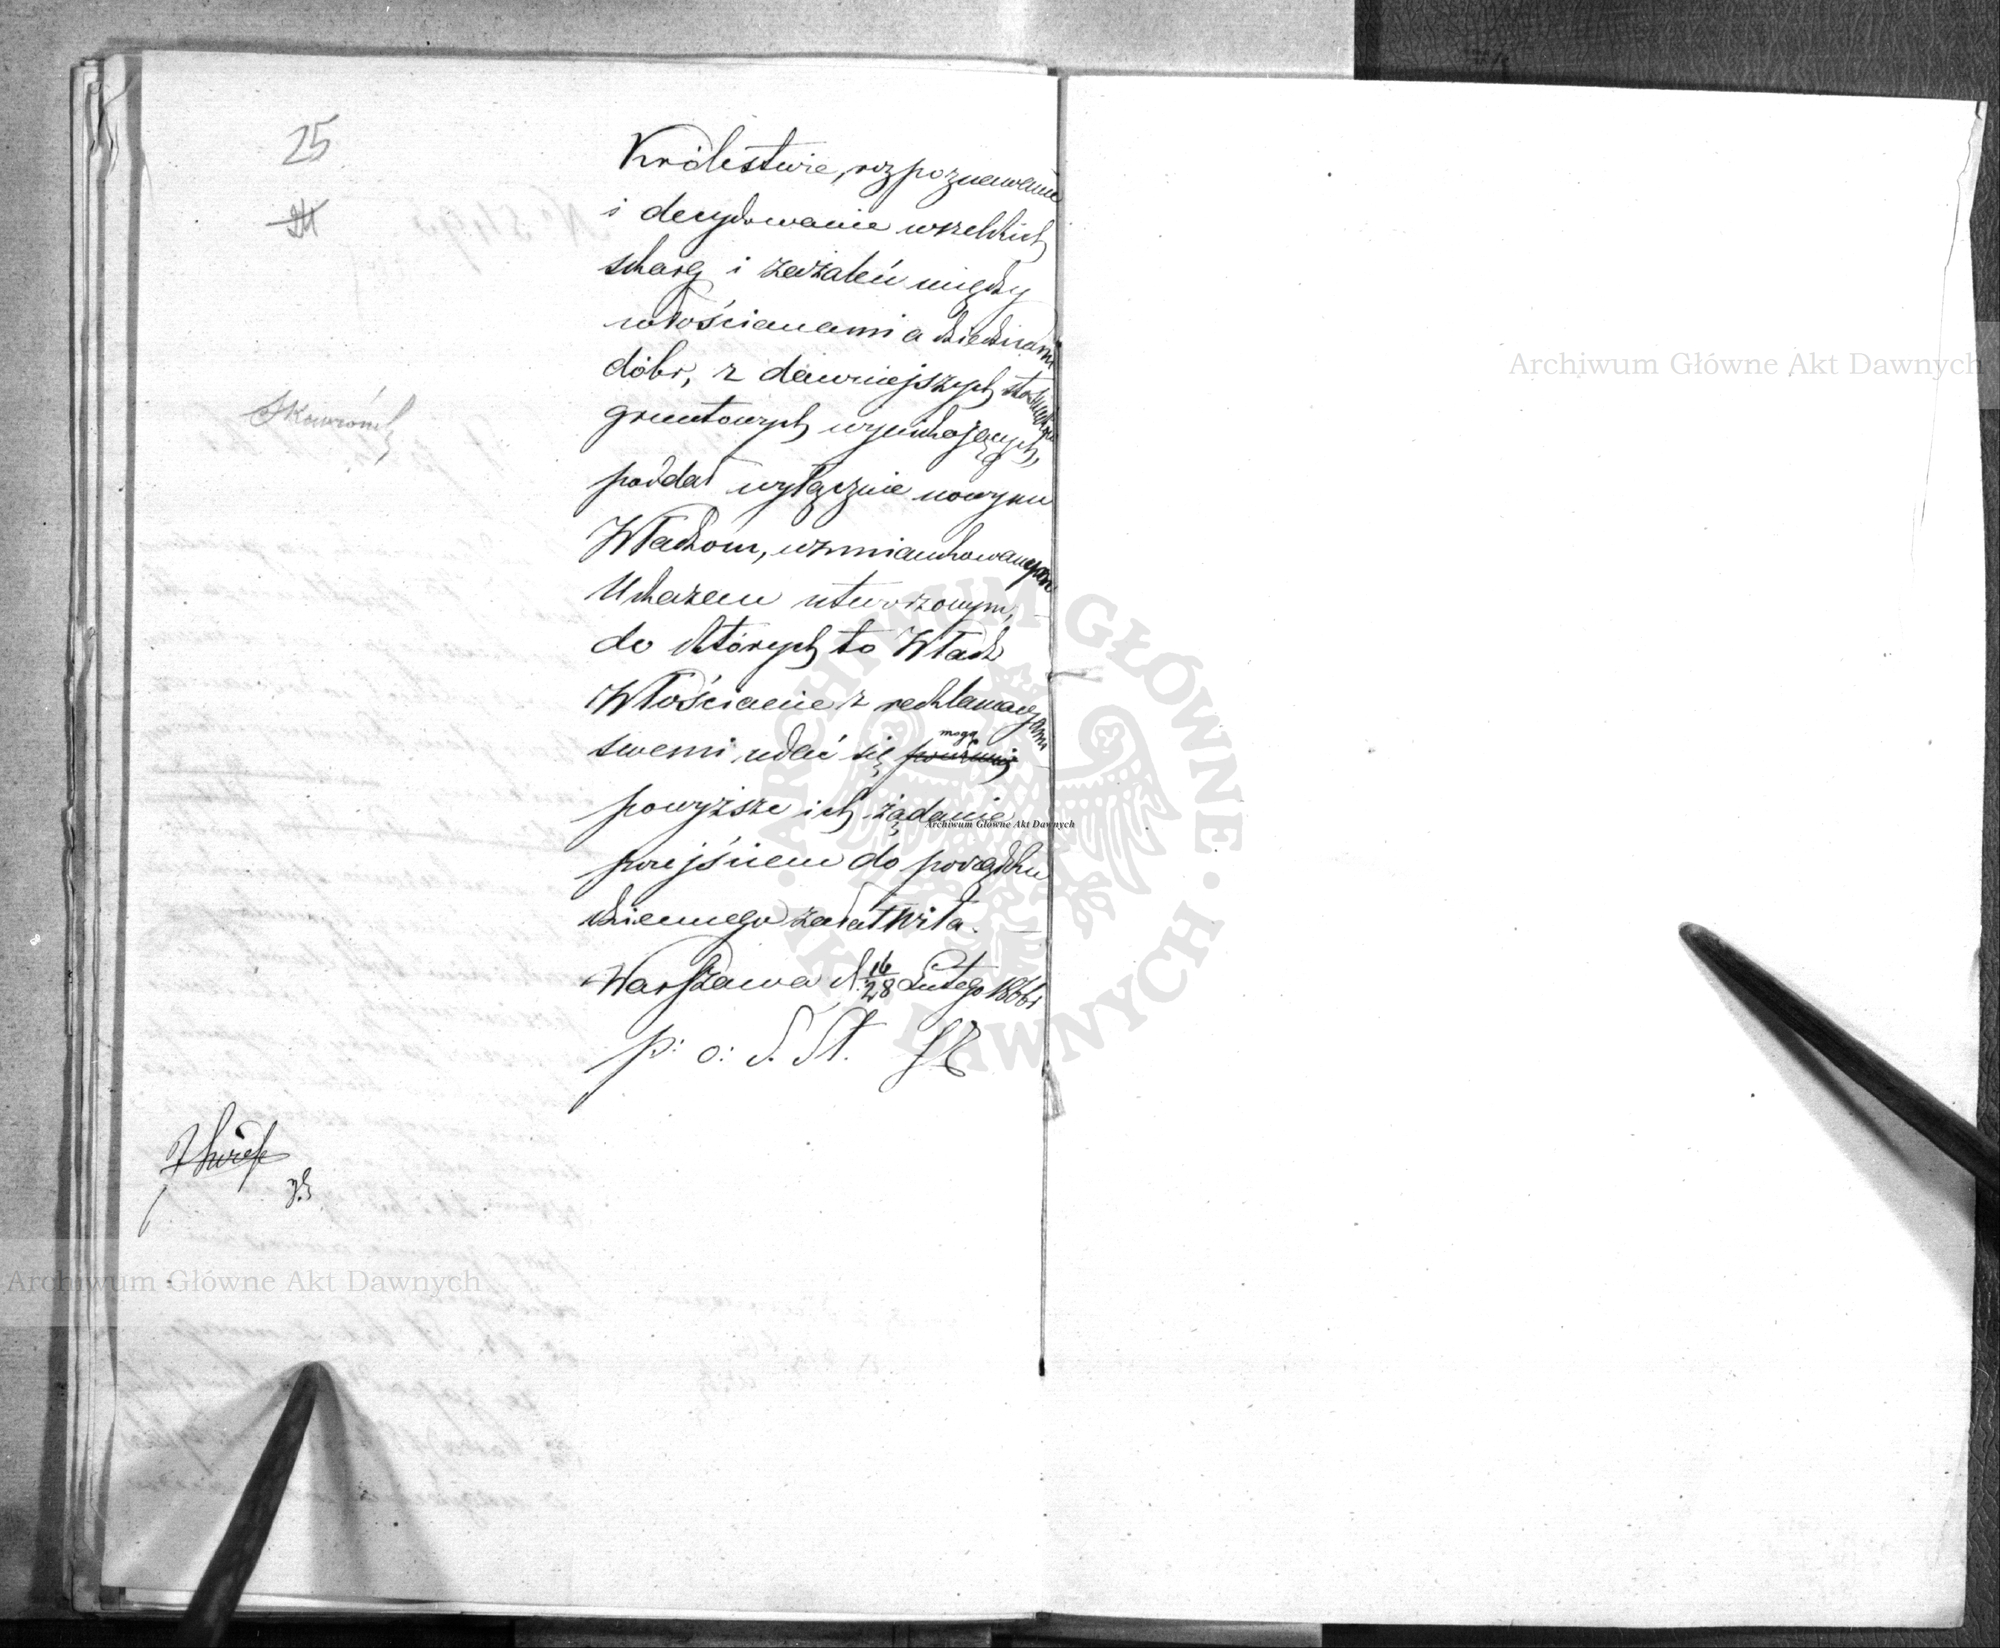 25
Skowronek
Królestwie, rozpoznawanie
i decydowanie wszelkich
skarg i zażaleń między
włościanami a dziedzicami
dóbr, z dawniejszych stosunków
gruntowych wynikających,
poddał wyłącznie nowym
Władzom, wzmiankowanym
Ukazem utworzonym,
do których to Władz
Włościanie z reklamacyami
swemi udać się mogą
powyższe ich żądanie
przejściem do porządku
dziennego załatwiła.
Warszawa d. 16/28 Lutego 1866 r
p: o: S. St.
Archiwum Główne Akt Dawnych
Archiwum Główne Akt Dawnych
Archiwum Główne Akt Dawnych
ARCHIWUM GŁÓWNE AKT DAWNYCH